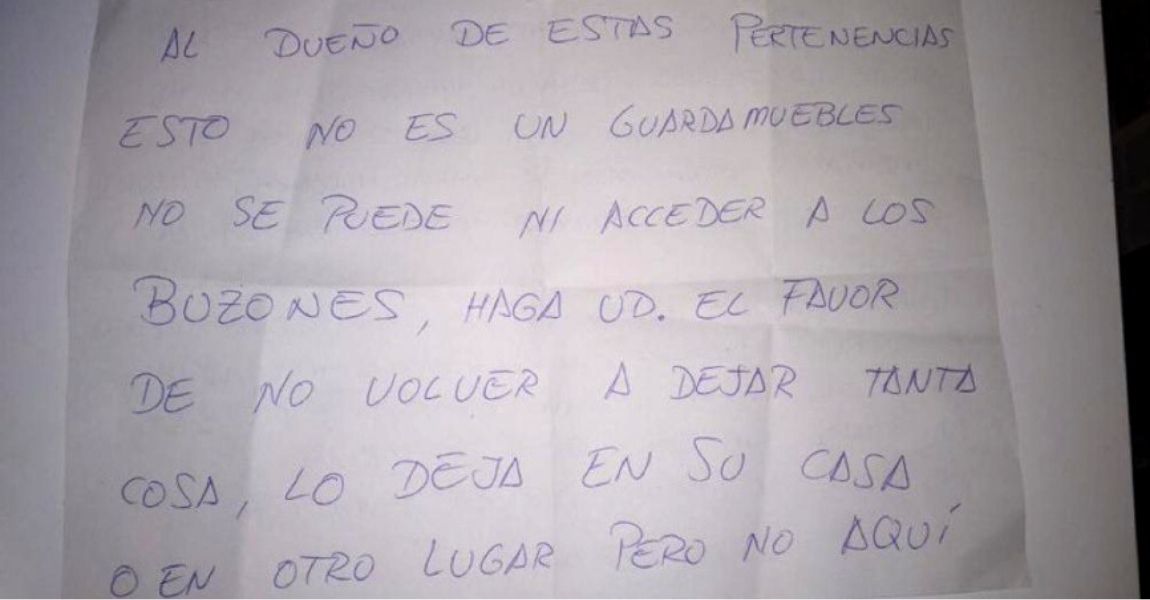 AL DUEÑO DE ESTAS PERTENENCIAS
ESTO NO ES UN GUARDAMUEBLES
NO SE PUEDE NI ACCEDER A LOS
BUZONES, HAGA UD. EL FAVOR
DE NO VOLVER A DEJAR TANTA
COSA, LO DEJA EN SU CASA
O EN OTRO LUGAR PERO NO AQUÍ